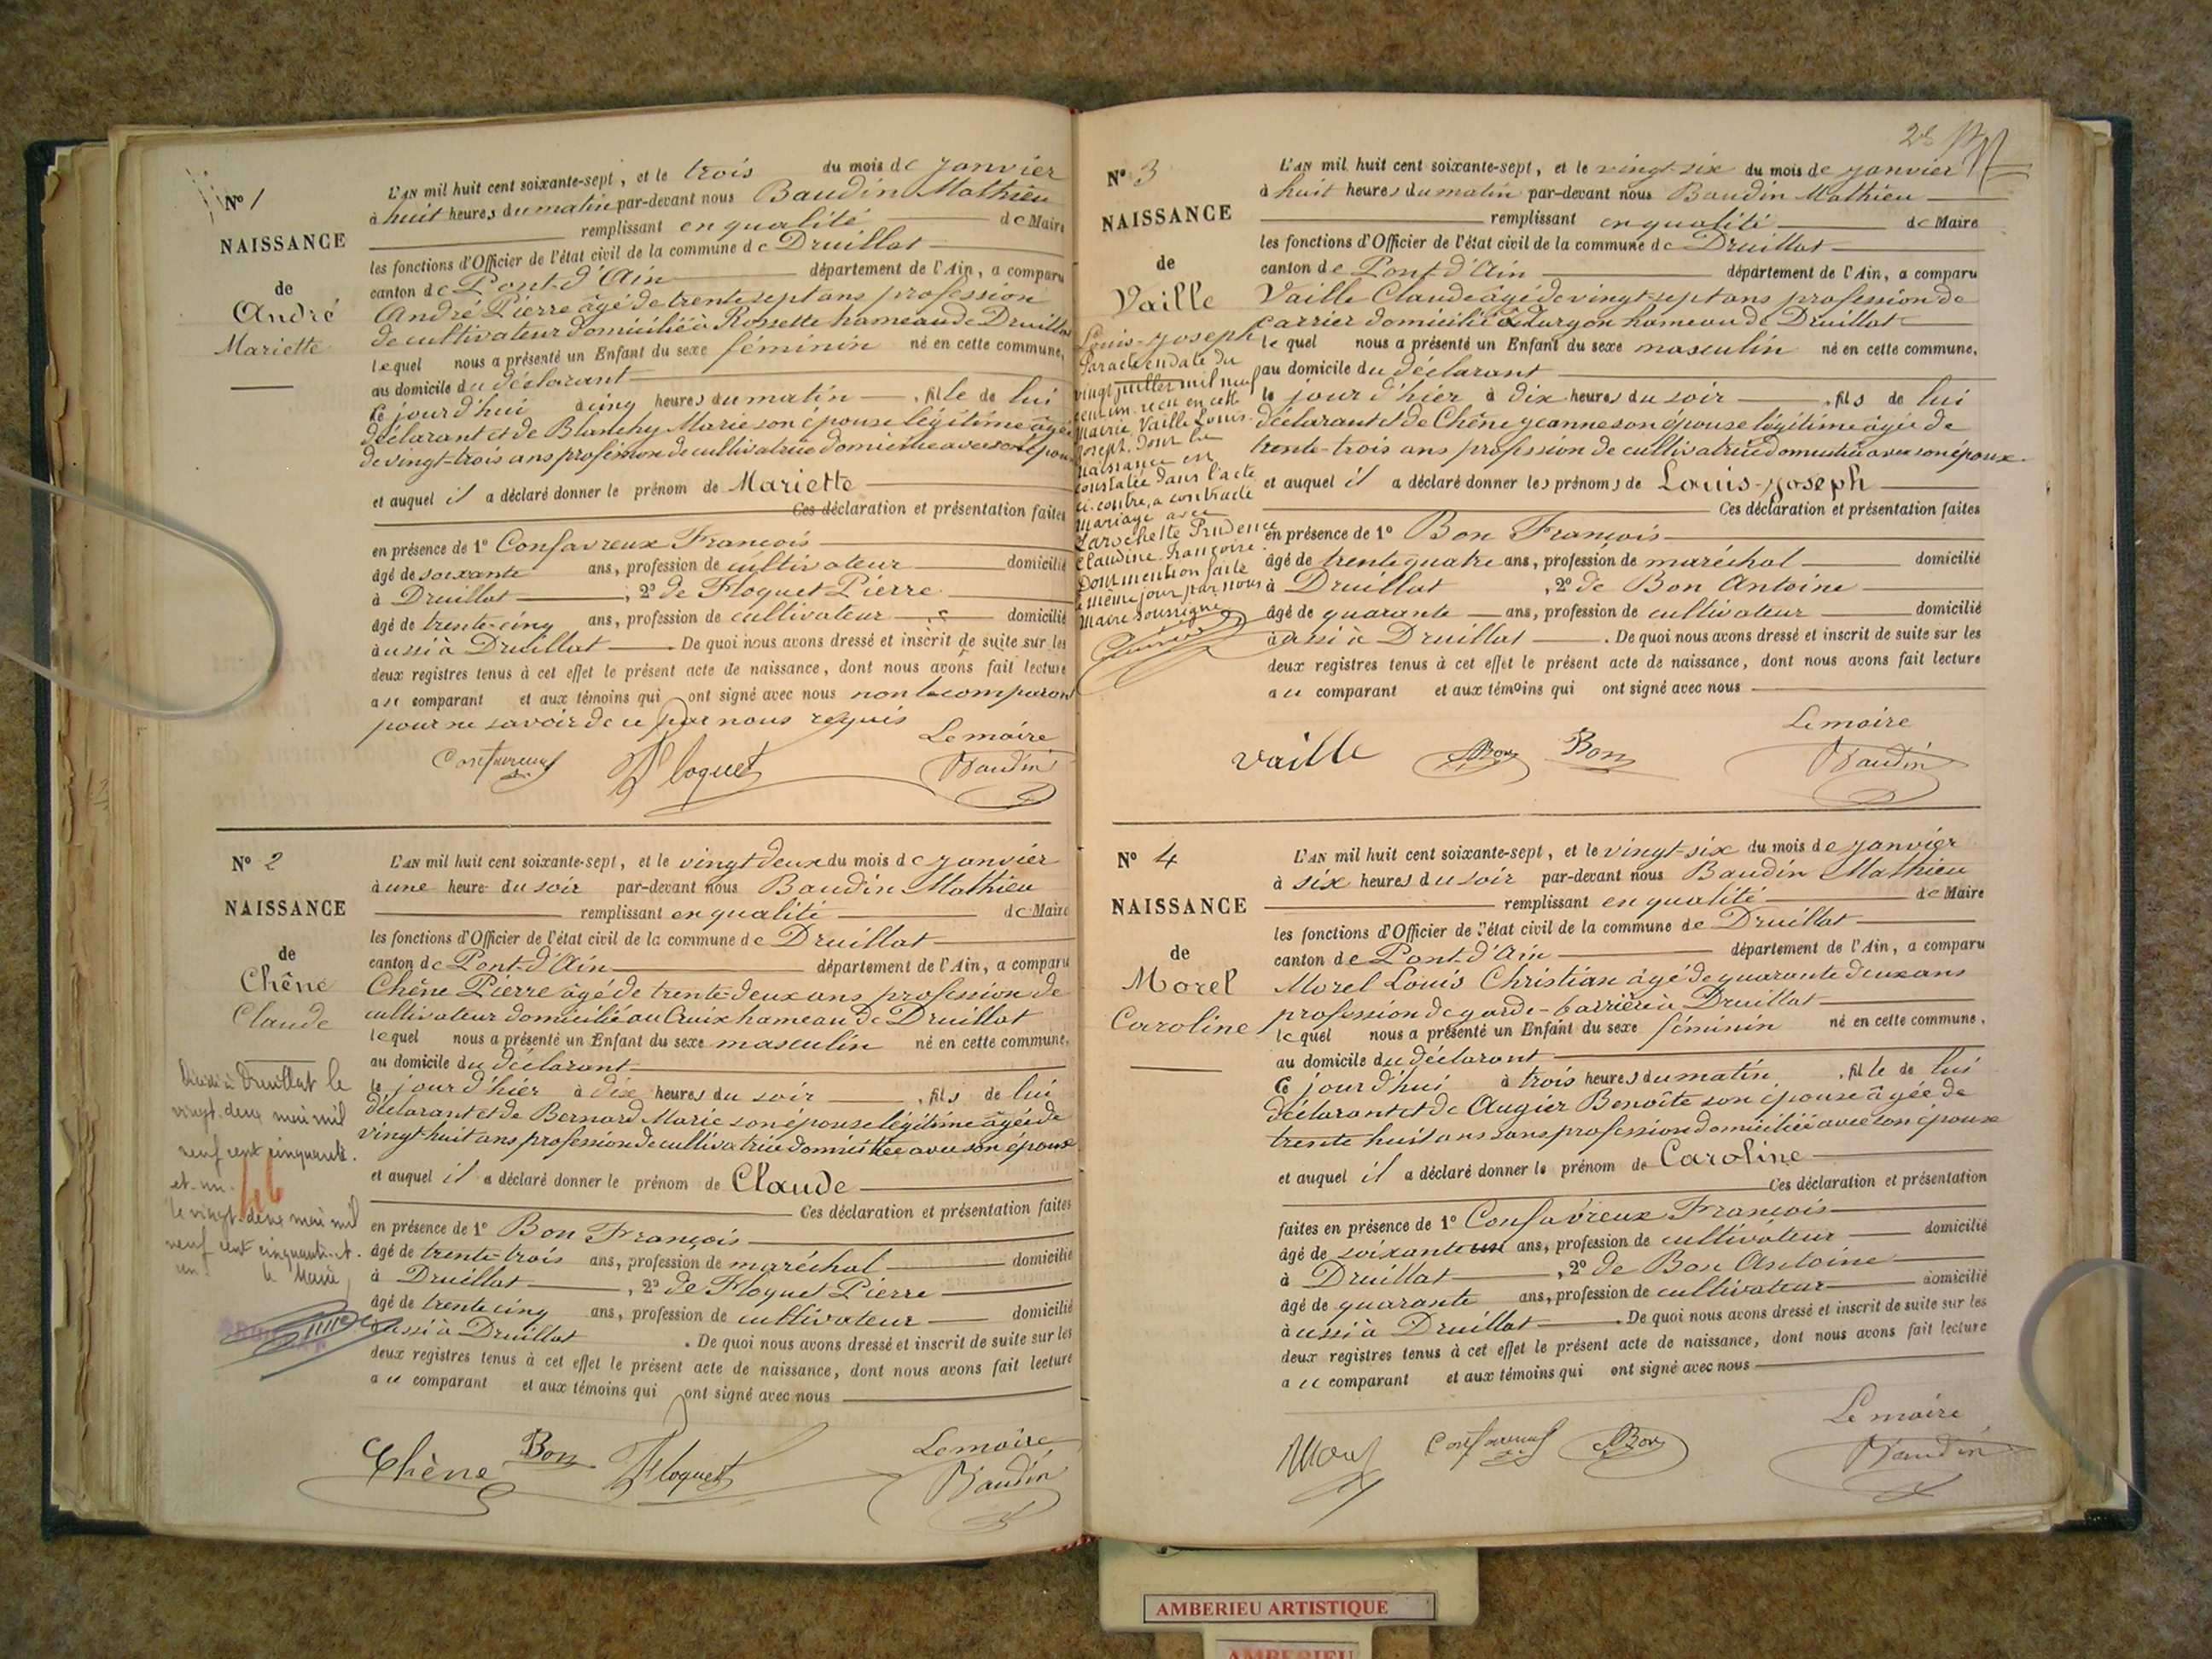 Nº 1
NAISSANCE
de
André
Mariette
L'AN mil huit cent soixante-sept, et le trois du mois de janvier
à huit heures du matin par-devant nous Baudin Mathieu
remplissant en qualité de Maire
les fonctions d'Officier de l'état civil de la commune de Druillat
canton de Pont-d'Ain département de l'Ain, a comparu
André Pierre âgé de trente sept ans profession
de cultivateur domicilié à Rossette hameau de Druillat
lequel nous a présenté un Enfant du sexe féminin né en cette commune,
au domicile du déclarant
ce jourd'hui à cinq heures du matin , fille de lui
déclarant et de Blanchy Marie son épouse légitime âgée
de vingt-trois ans profession de cultivatrice domiciliée avec son époux
et auquel il a déclaré donner le prénom de Mariette
Ces déclaration et présentation faites
en présence de 1º Confavreux François
âgé de soixante ans, profession de cultivateur domicilié
à Druillat , 2º de Floquet Pierre
âgé de trente-cinq ans, profession de cultivateur domicilié
aussi à Druillat . De quoi nous avons dressé et inscrit de suite sur les
deux registres tenus à cet effet le présent acte de naissance, dont nous avons fait lecture
au comparant et aux témoins qui ont signé avec nous non le comparant
pour ne savoir de ce par nous requis
Le maire
Confavreux Floquet Baudin
Nº 2
NAISSANCE
de
Chêne
Claude
Décédé à Druillat le
vingt-deux mai mil
neuf cent cinquante
et un.
le vingt-deux mai mil
neuf cent cinquante et
un le Maire
L'AN mil huit cent soixante-sept, et le vingt deux du mois de janvier
à une heure du soir par-devant nous Baudin Mathieu
remplissant en qualité de Maire
les fonctions d'Officier de l'état civil de la commune de Druillat
canton de Pont-d'Ain département de l'Ain, a comparu
Chêne Pierre âgé de trente-deux ans profession de
cultivateur domicilié au Cruix hameau de Druillat
lequel nous a présenté un Enfant du sexe masculin né en cette commune,
au domicile du déclarant
le jour d'hier à dix heures du soir , fils de lui
déclarant et de Bernard Marie son épouse légitime âgée de
vingt-huit ans profession de cultivatrice domiciliée avec son époux
et auquel il a déclaré donner le prénom de Claude
Ces déclaration et présentation faites
en présence de 1º Bon François
âgé de trente-trois ans, profession de maréchal domicilié
à Druillat , 2º de Floquet Pierre
âgé de trente cinq ans, profession de cultivateur domicilié
aussi à Druillat . De quoi nous avons dressé et inscrit de suite sur les
deux registres tenus à cet effet le présent acte de naissance, dont nous avons fait lecture
au comparant et aux témoins qui ont signé avec nous
Le maire
Chêne Bon Floquet Baudin
Nº 3
NAISSANCE
de
Vaille
Louis-Joseph
Par acte en date du
vingt juillet mil neuf
cent un reçu en cette
Mairie, Vaille Louis-
Joseph, dont la
naissance est
constatée dans l'acte
ci-contre, a contracté
mariage avec
Larochette Prudence
Claudine Françoise.
Dont mention faite
le même jour par nous
Maire soussigné
L'AN mil huit cent soixante-sept, et le vingt-six du mois de janvier
à huit heures du matin par-devant nous Baudin Mathieu
remplissant en qualité de Maire
les fonctions d'Officier de l'état civil de la commune de Druillat
canton de Pont-d'Ain département de l'Ain, a comparu
Vaille Claude âgé de vingt-sept ans profession de
carrier domicilié à Turgon hameau de Druillat
lequel nous a présenté un Enfant du sexe masculin né en cette commune,
au domicile du déclarant
le jour d'hier à dix heures du soir , fils de lui
déclarant et de Chêne Jeanne son épouse légitime âgée de
trente-trois ans profession de cultivatrice domiciliée avec son époux
et auquel il a déclaré donner les prénoms de Louis-Joseph
Ces déclaration et présentation faites
en présence de 1º Bon François
âgé de trente quatre ans, profession de maréchal domicilié
à Druillat , 2º de Bon Antoine
âgé de quarante ans, profession de cultivateur domicilié
aussi à Druillat . De quoi nous avons dressé et inscrit de suite sur les
deux registres tenus à cet effet le présent acte de naissance, dont nous avons fait lecture
au comparant et aux témoins qui ont signé avec nous
Le maire
Vaille Bon Bon Baudin
Nº 4
NAISSANCE
de
Morel
Caroline
L'AN mil huit cent soixante-sept, et le vingt-six du mois de janvier
à six heures du soir par-devant nous Baudin Mathieu
remplissant en qualité de Maire
les fonctions d'Officier de l'état civil de la commune de Druillat
canton de Pont-d'Ain département de l'Ain, a comparu
Morel Louis Christian âgé de quarante deux ans
profession de garde-barrière à Druillat
lequel nous a présenté un Enfant du sexe féminin né en cette commune,
au domicile du déclarant
ce jourd'hui à trois heures du matin , fille de lui
déclarant et de Augier Benoîte son épouse âgée de
trente huit ans sans profession domiciliée avec son époux
et auquel il a déclaré donner le prénom de Caroline
Ces déclaration et présentation
faites en présence de 1º Confavreux François
âgé de soixante ans, profession de cultivateur domicilié
à Druillat , 2º de Bon Antoine
âgé de quarante ans, profession de cultivateur domicilié
aussi à Druillat . De quoi nous avons dressé et inscrit de suite sur les
deux registres tenus à cet effet le présent acte de naissance, dont nous avons fait lecture
au comparant et aux témoins qui ont signé avec nous
Le maire
Morel Confavreux Bon Baudin
AMBERIEU ARTISTIQUE
AMBERIEU